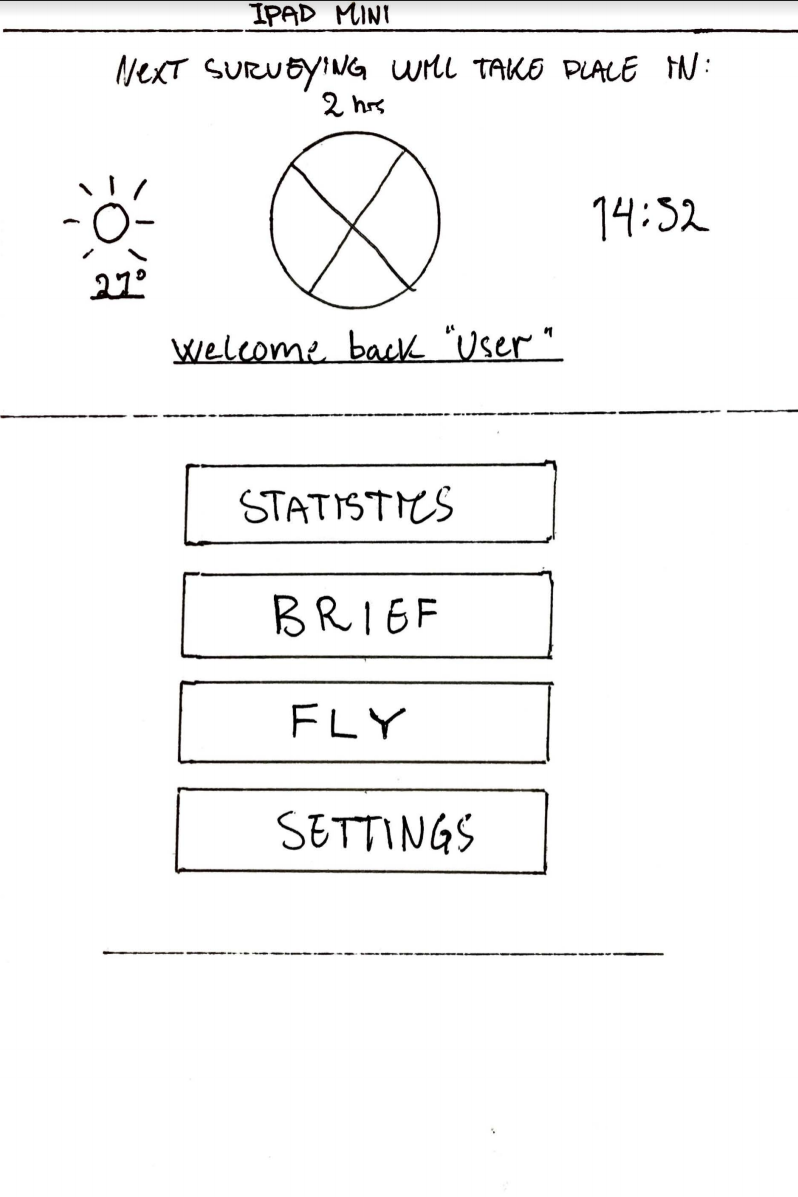 IPAD MINI
NEXT SURVEYING WILL TAKE PLACE IN:
2 hrs
14:32
27°
Welcome back "User"
STATISTICS
BRIEF
FLY
SETTINGS